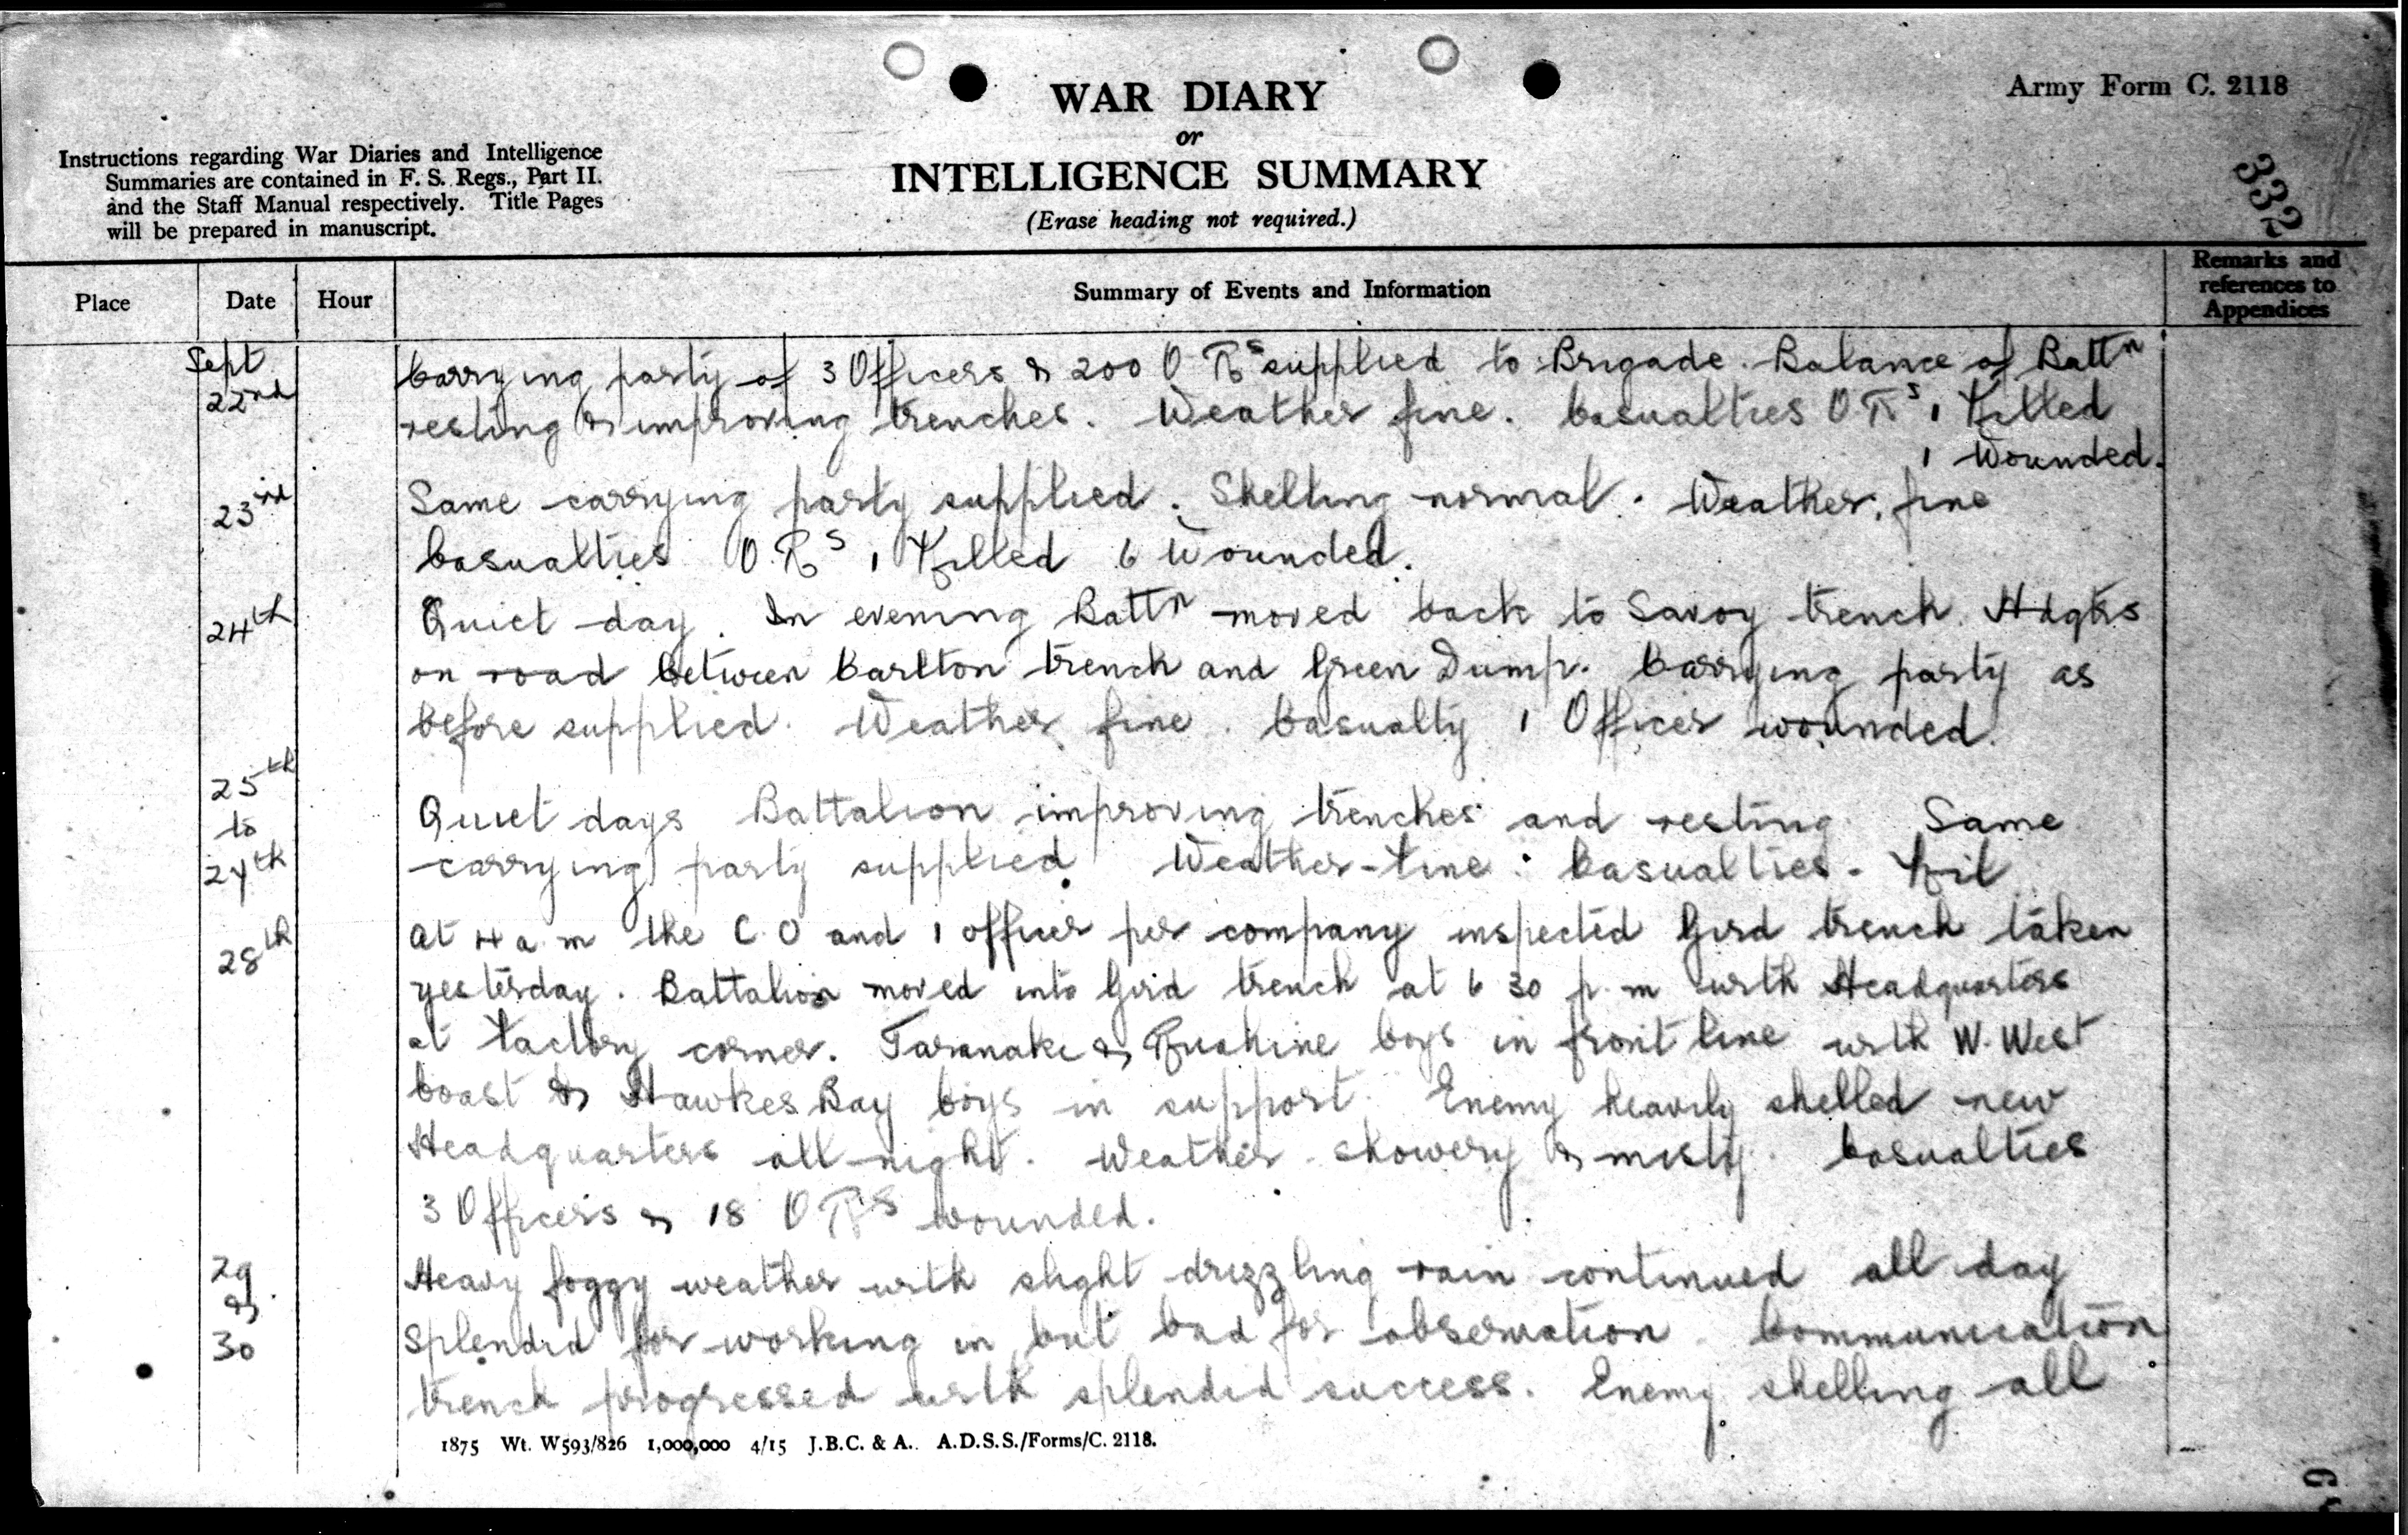 WAR DIARY
or
INTELLIGENCE SUMMARY
(Erase heading not required.)
Army Form C. 2118
332
Instructions regarding War Diaries and Intelligence
Summaries are contained in F. S. Regs., Part II.
and the Staff Manual respectively. Title Pages
will be prepared in manuscript.
Place
Date
Hour
Summary of Events and Information
Remarks and
references to
Appendices
Sept
22nd
Carrying party of 3 Officers & 200 O Rs supplied to Brigade. Balance of Battn
resting & improving trenches. Weather fine. Casualties O Rs 1 Killed
1 Wounded.
23rd
Same carrying party supplied. Shelling normal. Weather fine
Casualties O.Rs 1 Killed 6 Wounded.
24th
Quiet day. In evening Battn moved back to Savoy trench. Hdqtrs
on road between Carlton trench and Green Dump. Carrying party as
before supplied. Weather fine. Casualty 1 Officer wounded.
25th
to
27th
Quiet days Battalion improving trenches and resting. Same
carrying party supplied. Weather fine. Casualties - Nil
28th
At 4 a.m the C.O and 1 officer per company inspected Gird trench taken
yesterday. Battalion moved into Gird trench at 6 30 p.m with Headquarters
at Factory corner. Taranaki & Ruahine coys in front line with W. West
Coast & Hawkes Bay coys in support. Enemy heavily shelled new
Headquarters all night. Weather showery & misty. Casualties
3 Officers & 18 O Rs wounded.
29
&
30
Heavy foggy weather with slight drizzling rain continued all day
Splendid for working in but bad for observation. Communication
trench progressed with splendid success. Enemy shelling all
1875 Wt. W593/826 1,000,000 4/15 J.B.C. & A. A.D.S.S./Forms/C. 2118.